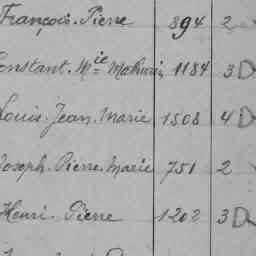 François-Pierre 894 2
Constant-Mie Mathurin 1184 3 D
Louis-Jean-Marie 1508 4 D
Joseph-Pierre-Marie 751 2
Henri-Pierre 1202 3 D